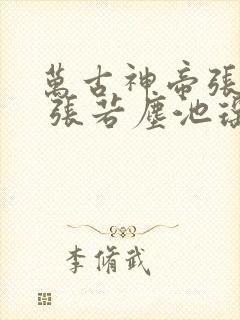 萬古神帝張
張若塵池
李脩武